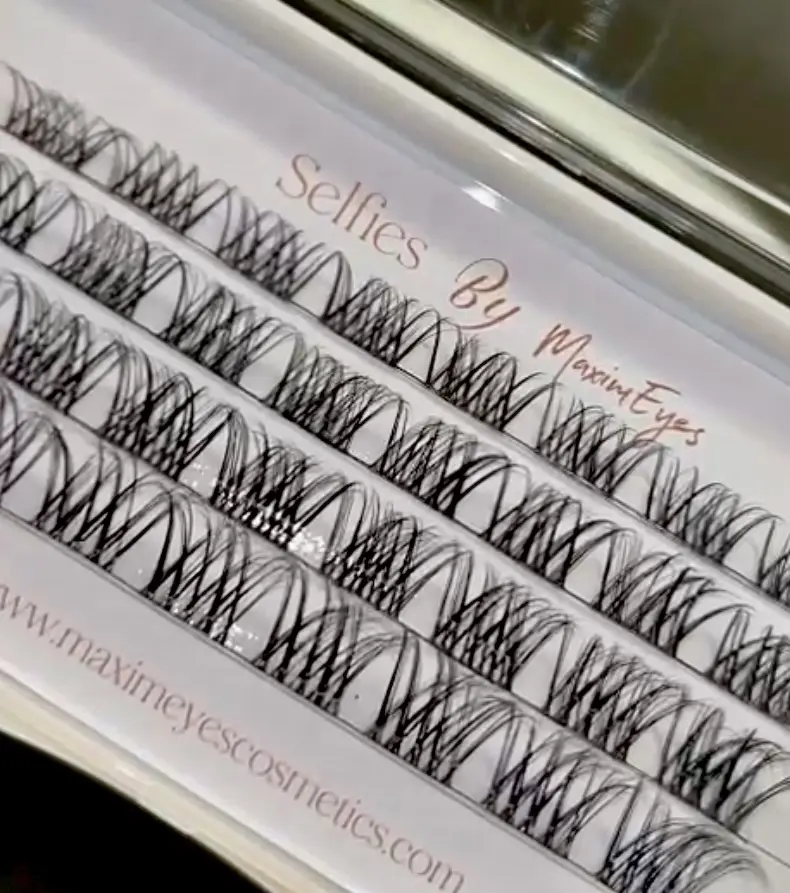 Selfies By MaximEyes
www.maximeyescosmetics.com